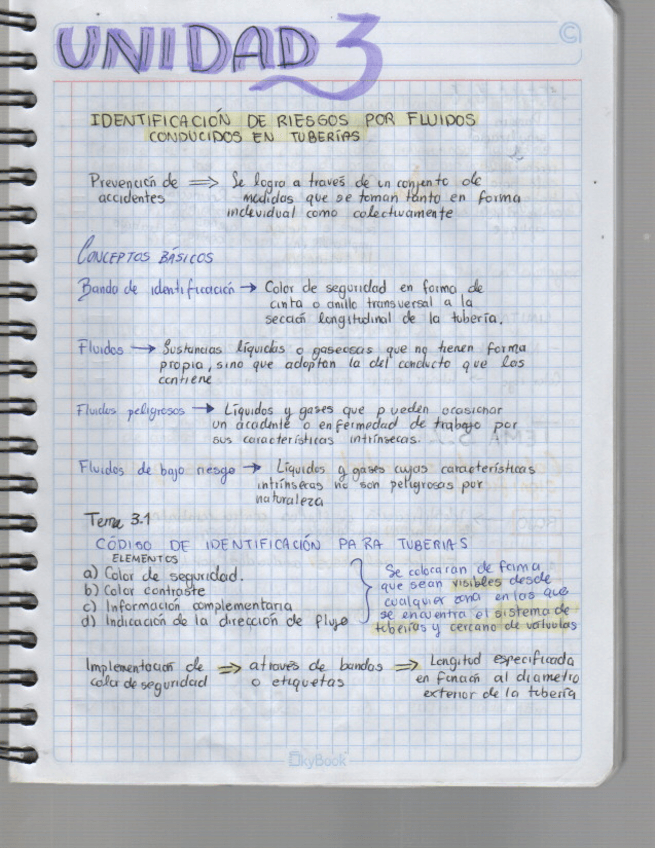 UNIDAD 3
IDENTIFICACIÓN DE RIESGOS POR FLUIDOS
CONDUCIDOS EN TUBERÍAS
Prevención de => Se logra a través de un conjunto de
accidentes medidas que se toman tanto en forma
individual como colectivamente
CONCEPTOS BÁSICOS
Banda de identificación → Color de seguridad en forma de
cinta o anillo transversal a la
sección longitudinal de la tubería.
Fluidos → Sustancias líquidas o gaseosas que no tienen forma
propia, sino que adoptan la del conducto que los
contiene
Fluidos peligrosos → Líquidos y gases que pueden ocasionar
un accidente o enfermedad de trabajo por
sus características intrínsecas.
Fluidos de bajo riesgo → Líquidos y gases cuyas características
intrínsecas no son peligrosas por
naturaleza
Tema 3.1
CÓDIGO DE IDENTIFICACIÓN PARA TUBERIAS
ELEMENTOS
a) Color de seguridad.
b) Color contraste
c) Información complementaria
d) Indicación de la dirección de flujo
Se colocaran de forma
que sean visibles desde
cualquier zona en las que
se encuentra el sistema de
tuberías y cercano de valvulas
Implementación de => através de bandas => Longitud especificada
color de seguridad o etiquetas en función al diametro
exterior de la tubería
SkyBook